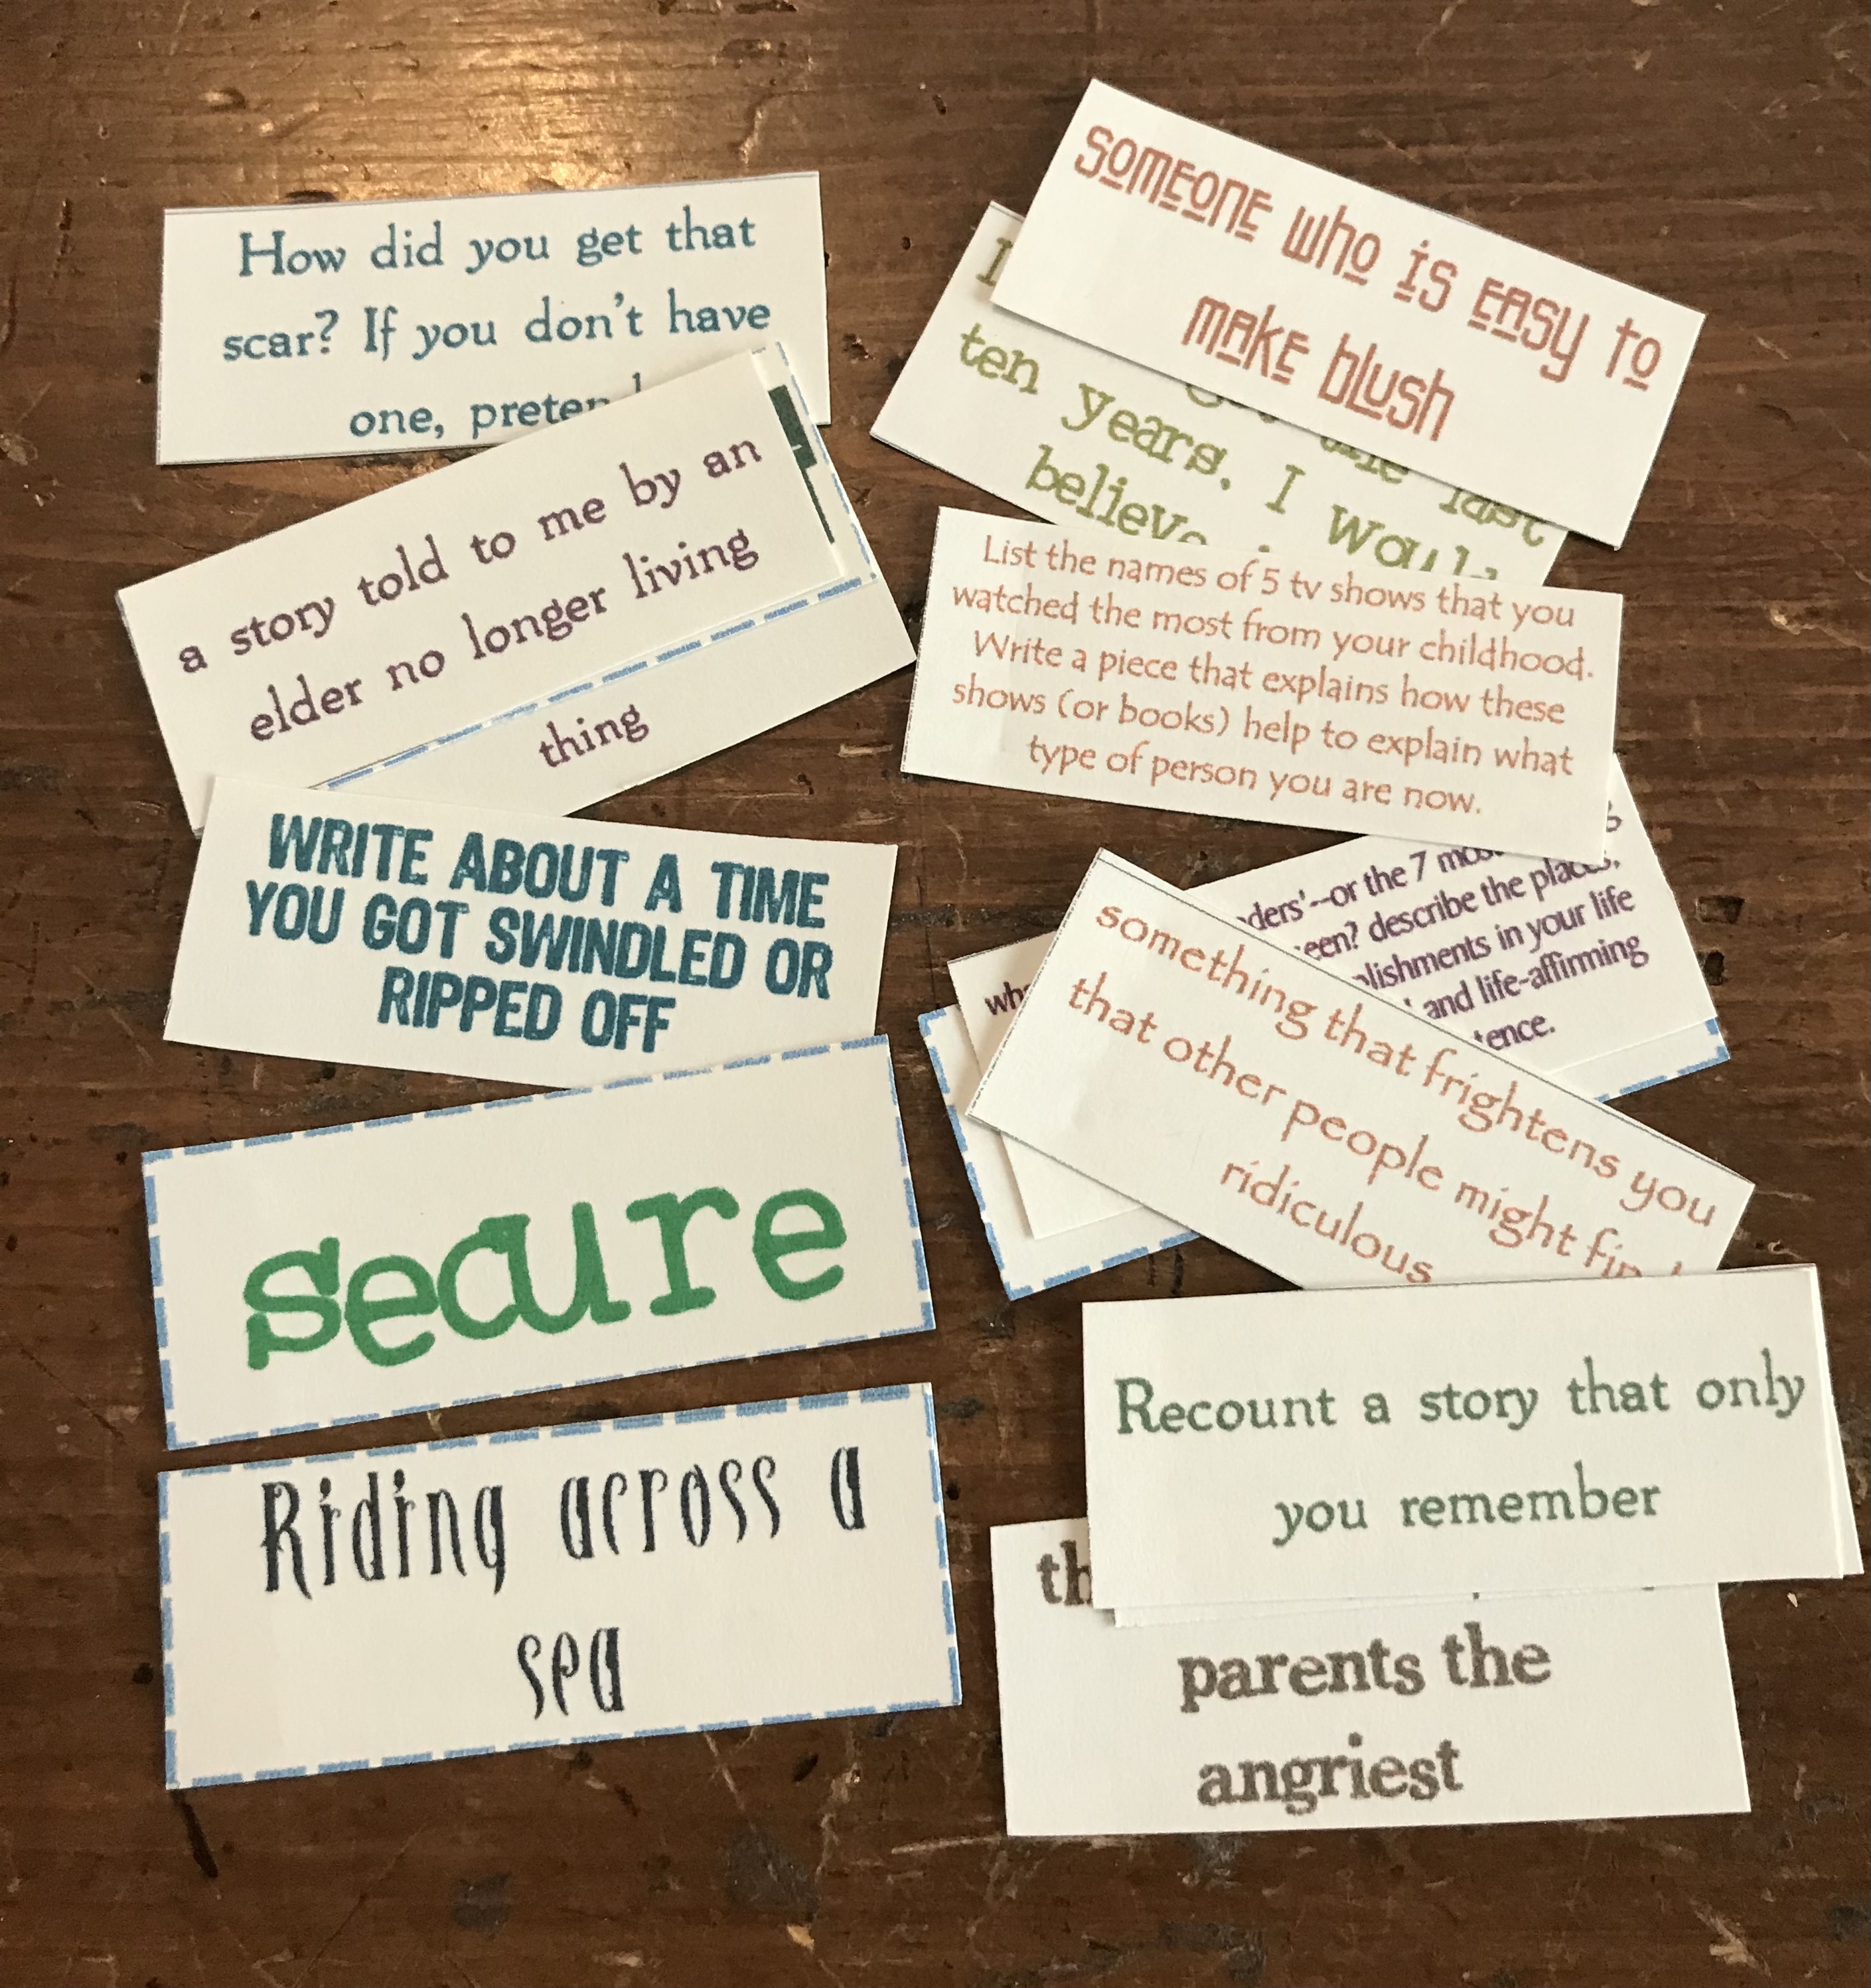 How did you get that
scar? If you don't have
one,
a story told to me by an
elder no longer living
thing
WRITE ABOUT A TIME
YOU GOT SWINDLED OR
RIPPED OFF
secure
Riding across a
sea
someone who is easy to
make blush
last
ten years. I
List the names of 5 tv shows that you
watched the most from your childhood.
Write a piece that explains how these
shows (or books) help to explain what
type of person you are now.
ders'--or the 7
een? describe the places,
lishments in your life
and life-affirming
tence.
something that frightens you
that other people might
ridiculous
Recount a story that only
you remember
th
parents the
angriest